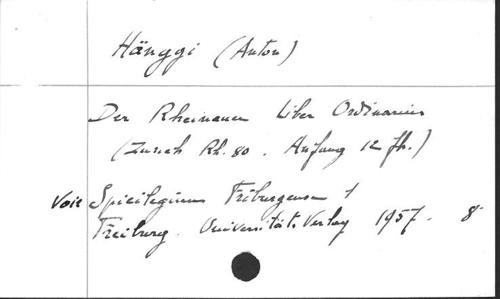 Hänggi (Anton)
Der Rheinauer Liber Ordinarius
(Zürich Rh. 80. Anfang 12 Jh.)
Voir Spicilegium Friburgense 1
Freiburg. Universitäts Verlag 1957. 8°